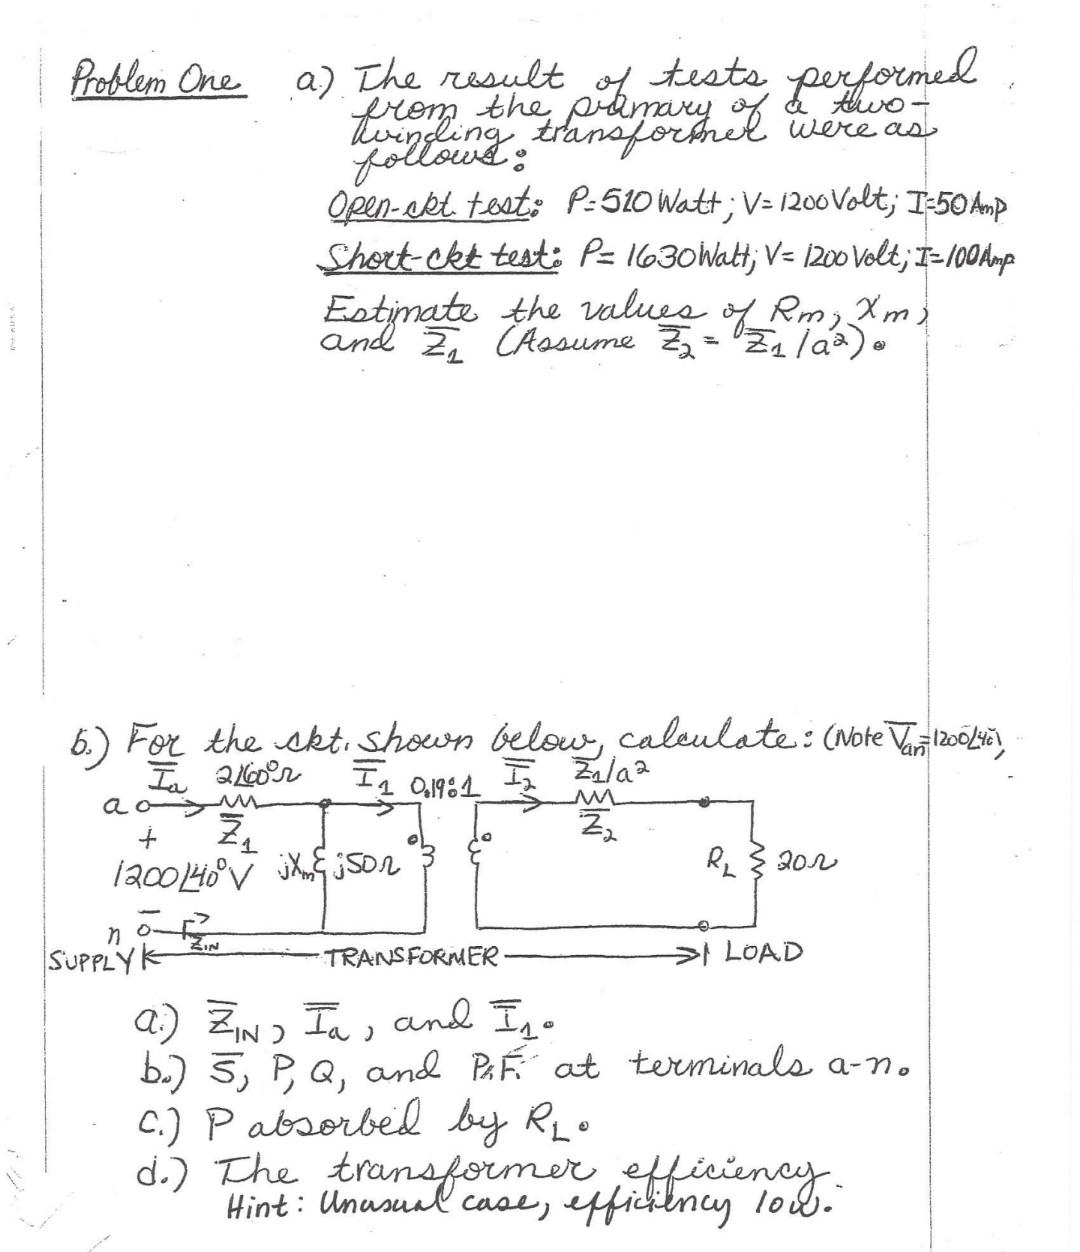 Problem One a.) The result of tests performed
from the primary of a two-
winding transformer were as
follows:
Open-ckt. test: P=510 Watt; V=1200 Volt; I=50 Amp
Short-ckt test: P= 1630 Watt; V= 1200 Volt; I=100 Amp
Estimate the values of Rm, Xm,
and Z̅1 (Assume Z̅2 = Z̅1/a²).
b.) For the ckt. shown below, calculate: (Note V̅an=1200∠40°),
I̅a 2∠60°Ω I̅1 0.19:1 I̅2 Z̅1/a²
a
+ Z̅1 Z̅2
1200∠40° V jXm j50Ω RL 20Ω
−
n ZIN
SUPPLY TRANSFORMER LOAD
a.) Z̅IN, I̅a, and I̅1.
b.) S̅, P, Q, and P.F. at terminals a-n.
c.) P absorbed by RL.
d.) The transformer efficiency.
Hint: Unusual case, efficiency low.